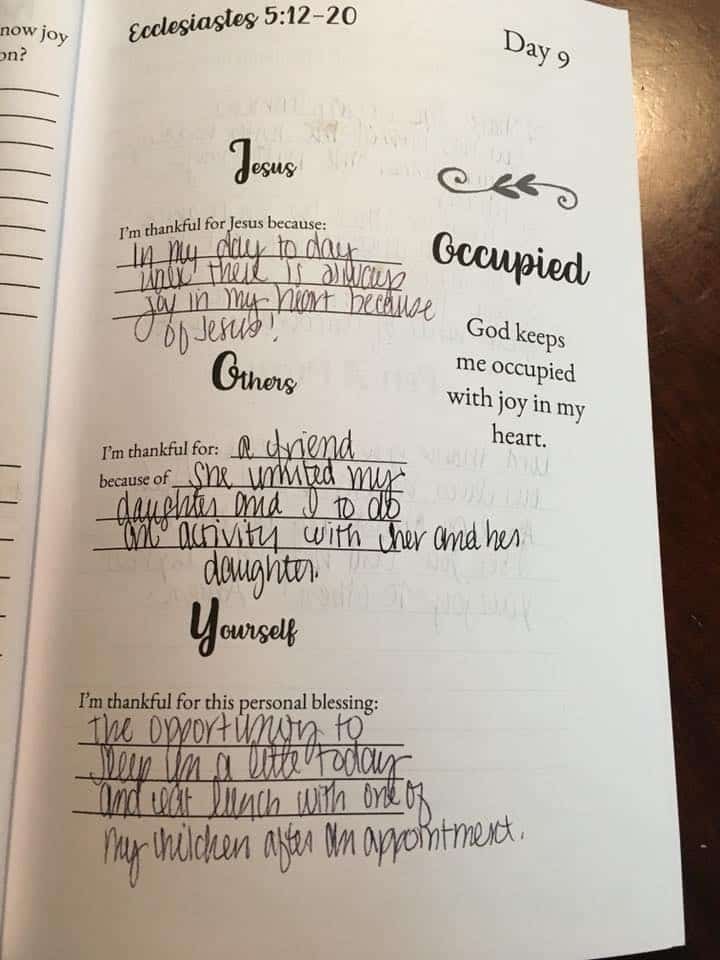 now joy
on?
Ecclesiastes 5:12-20
Day 9
Jesus
I'm thankful for Jesus because:
In my day to day
walk there is always
joy in my heart because
of Jesus!
Occupied
God keeps
me occupied
with joy in my
heart.
Others
I'm thankful for: a friend
because of She invited my
daughter and I to do
an activity with her and her
daughter.
Yourself
I'm thankful for this personal blessing:
the opportunity to
sleep in a little today
and eat lunch with one of
my children after an appointment.